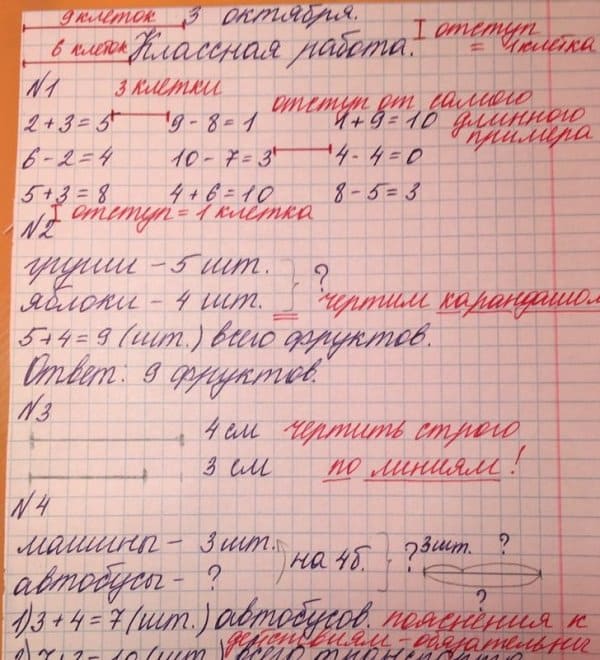 9 клеток 3 октября.
отступ = 1 клетка
6 клеток Классная работа.
№1 3 клетки
отступ от самого длинного примера
2+3=5 9-8=1 1+9=10
6-2=4 10-7=3 4-4=0
5+3=8 4+6=10 8-5=3
отступ = 1 клетка
№2
груши - 5 шт.
яблоки - 4 шт. } ? = чертим карандашом
5+4=9 (шт.) всего фруктов.
Ответ: 9 фруктов.
№3
4 см чертить строго
3 см по линиям!
№4
машины - 3 шт.
автобусы - ? на 4 б. } ? 3 шт. ?
?
1) 3+4=7 (шт.) автобусов. пояснения к
действиям - обязательны
2) 7+3=10 (шт.) всего